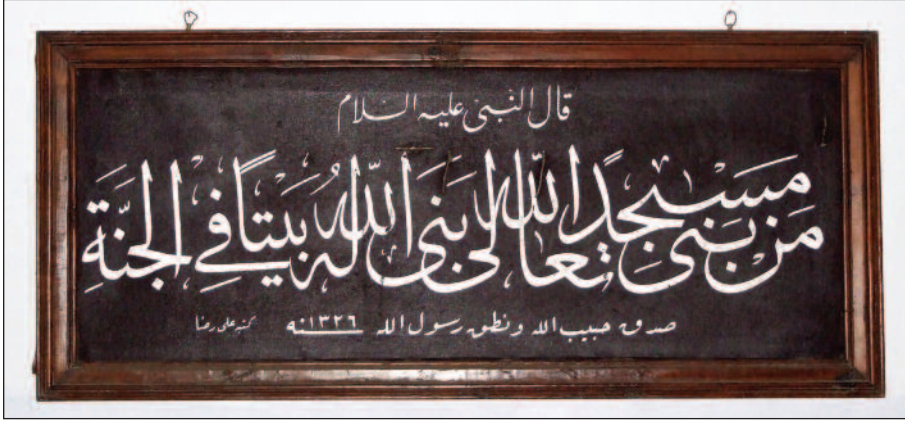 قال النبى عليه السلام
مَن بَنىٰ مَسْجِدًا لله تعالى بَنى اللّٰه لَهُ بَيتًا فِي الجنَّةِ
صدق حبيب الله ونطق رسول الله ١٣٢٦نه كتبه على رضا